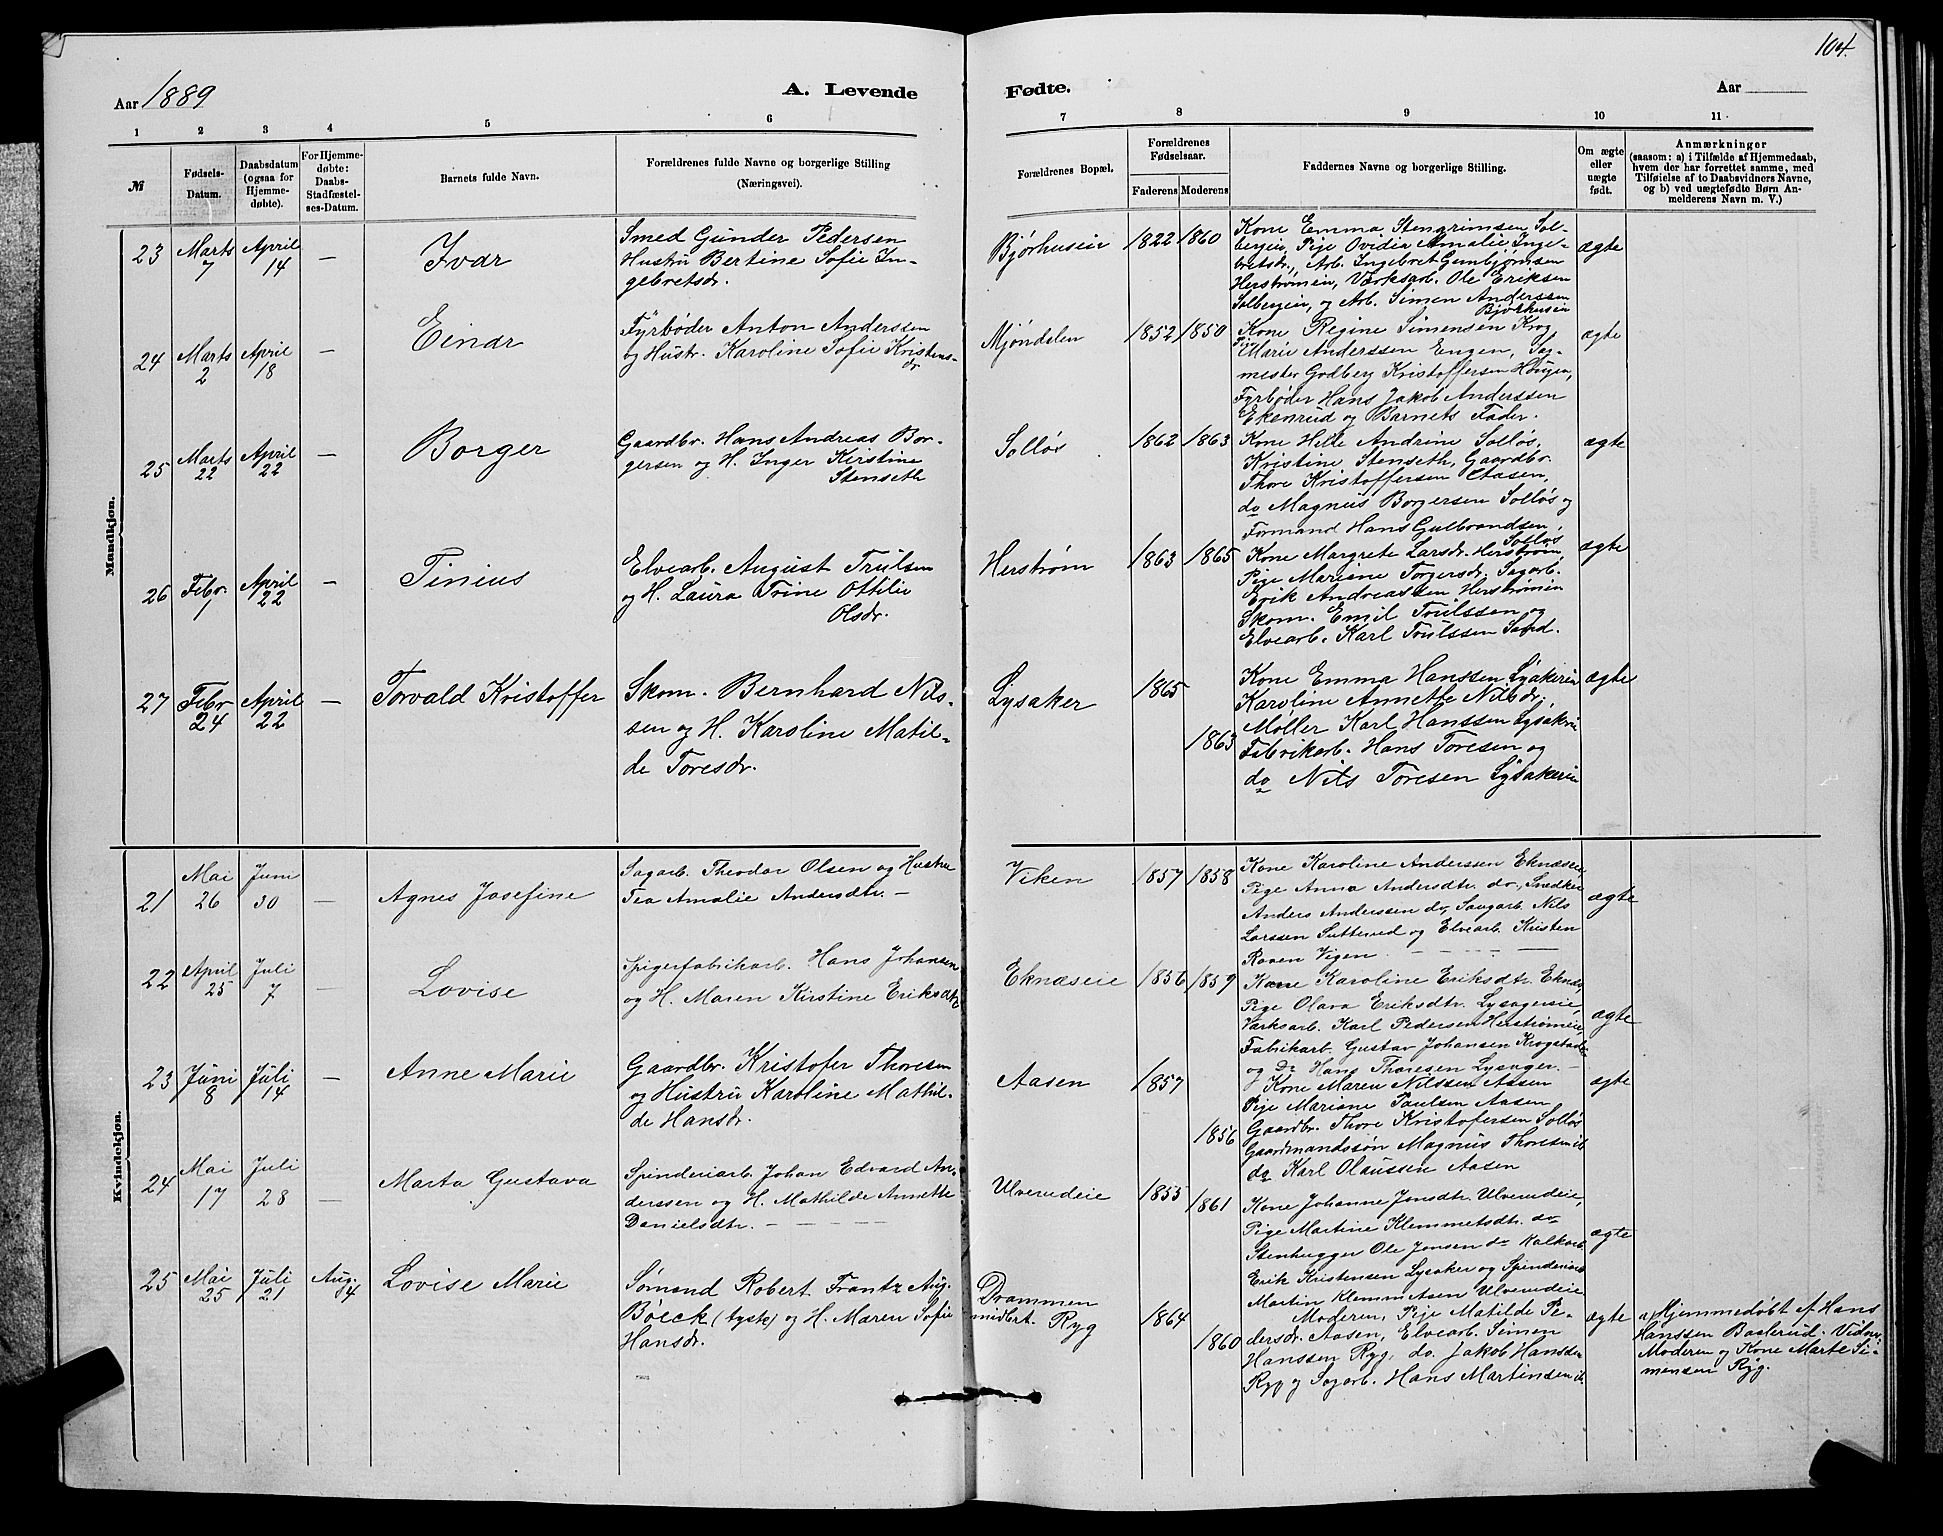 104.
Aar 1889
A. Levende
Fødte.
Aar
1 2 3 4 5 6 7 8 9 10 11
№
Fødsels-Datum.
Daabsdatum (ogsaa for Hjemmedøbte).
For Hjemmedøbte: Daabs-Stadfæstelses-Datum.
Barnets fulde Navn.
Forældrenes fulde Navne og borgerlige Stilling
(Næringsvei).
Forældrenes Bopæl.
Forældrenes Fødselsaar.
Faderens Moderens
Faddernes Navne og borgerlige Stilling.
Om ægte eller uægte født.
Anmærkninger
(saasom: a) i Tilfælde af Hjemmedaab,
hvem der har forrettet samme, med
Tilføielse af to Daabsvidners Navne,
og b) ved uægtefødte Børn An-
melderens Navn m. V.)
Mandkjøn.
23 Marts 7 April 14 — Ivar
Smed Gunder Pedersen
Hustru Bertine Sofie In-
gebretsdr.
Bjørhuseie 1822 1860
Kone Emma Stengrimsen Sol-
bergeie, Pige Ovidia Amalie Inge-
bretsdr., Arb. Ingebret Gunbjørnsen
Herstrømeie, Værksarb. Ole Eriksen
Solbergeie, og Arb. Simen Anderssen
Bjørhuseie
ægte
24 Marts 2 April 18 — Einar
Fyrbøder Anton Anderssen
og Hustr. Karoline Sofie Kristens-
dr
Mjøndalen 1852 1850
Kone Regine Simensen Krog
Pige Marie Anderssen Engen, Sag-
mester Godberg Kristoffersen Haugen,
Fyrbøder Hans Jakob Anderssen
Ekenrud og Barnets Fader.
ægte
25 Marts 22 April 22 — Borger
Gaardbr. Hans Andreas Bor-
gersen og H. Inger Kirstine
Stenseth
Solløs 1862 1863
Kone Helle Andrine Solløs,
Kristine Stenseth, Gaardbr.
Thore Kristoffersen Aasen,
do Magnus Borgersen Solløs og
Formand Hans Gulbrandsen,
Solløs
ægte
26 Febr. 1 April 22 — Tinius
Elvearb. August Trulsen
og H. Laura Trine Ottilie
Olsdr.
Herstrøm 1863 1865
Kone Margrete Larsdr. Herstrøm,
Pige Mariane Torgersdr. Sagarb.
Erik Andreassen Herstrømeie
Skom. Emil Trulssen og
Elvearb. Karl Trulssen Sand.
ægte
27 Febr 24 April 22 — Torvald Kristoffer
Skom. Bernhard Nils-
sen og H. Karoline Matil-
de Toresdr.
Lysaker 1865 1863
Kone Emma Hanssen Lysakerie
Karoline Annette Nilsdr,
Møller Karl Hanssen Lysakrie
Fabrikarb. Hans Toresen og
do Nils Toresen Lysakerie
ægte
Kvindekjøn.
21 Mai 26 Juni 30 — Agnes Josefine
Sagarb. Theodor Olsen og Hustru
Tea Amalie Andersdtr. —
Viken 1857 1858
Kone Karoline Anderssen Eknæseie
Pige Anna Andersdtr. do, Snedker
Anders Anderssen do, Saugarb. Nils
Larssen Sutterud og Elvearb. Kristen
Raven Vigen.
ægte
22 April 25 Juli 7 — Lovise
Spigerfabrikarb. Hans Johansen
og H. Maren Kirstine Eriksdtr
Eknæseie 1856 1859
Kone Karoline Eriksdtr. Eknæs,
Pige Olava Eriksdtr. Lysagereie,
Værksarb. Karl Pedersen Herstrømeie,
Fabrikarb. Gustav Johansen Krogstade.
og Do Hans Thoresen Lysager. —
ægte
23 Juni 8 Juli 14 — Anne Marie
Gaardbr. Kristofer Thoresen
og Hustru Karoline Mathil-
de Hansdr.
Aasen 1857 1856
Kone Maren Nilssen Aasen
Pige Mariane Paulsen Aasen
Gaardbr. Thore Kristofersen Solløs
Gaardmandssøn Magnus Thoresen ib.
do Karl Olaussen Aasen
ægte
24 Mai 17 Juli 28 — Marta Gustava
Spinderiarb. Johan Edvard An-
derssen og H. Mathilde Annette
Danielsdtr. —
Ulverudeie 1855 1861
Kone Johanne Jonsdtr. Ulverudeie,
Pige Martine Klemmetsdtr. do
Stenhugger Ole Jonsen do Kalkarb.
Erik Kristensen Lysaker og Spinderiarb.
Martin Klemmetsen Ulverudeie
ægte
25 Mai 25 Juli 21 Aug. 4 Lovise Marie
Sømand Robert Frantz Aug.
Böeck (tysk) og H. Maren Sofie
Hansdr.
Drammen
midlert. Ryg
1864 1860
Moderen, Pige Matilde Pe-
dersdr. Aasen, Elvearb. Simen
Hanssen Ryg, do. Jakob Hanssen
Ryg og Sagarb. Hans Martinsen ib.
ægte
a/ Hjemmedøbt af Hans
Hanssen Baslerud. Vidne:
Moderen og Kone Marte Si-
mensen Ryg.